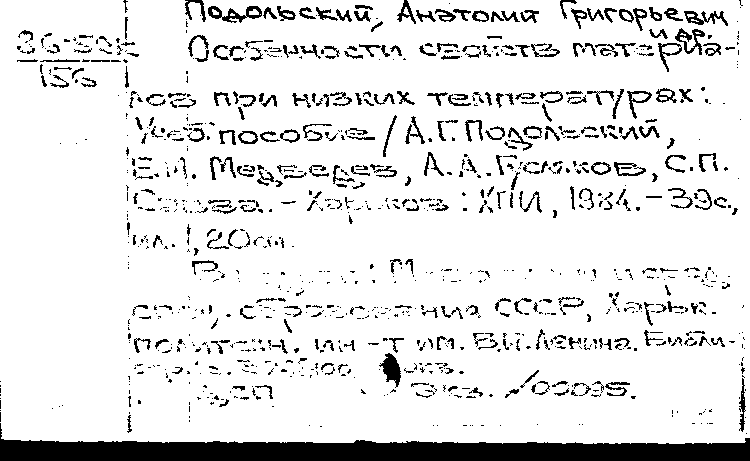 Подольский, Анатолий Григорьевич
и др.
Особенности свойств материа-
156
лов при низких температурах:
Учеб. пособие / А.Г. Подольский,
Е.М. Медведев, А.А. С.П.
- Харьков : ХПИ, 1984. - 39с.,
ил. , 20см.
В : М-во и сред.
спец. образования СССР, Харьк.
политехн. ин-т им. В.И. Ленина. Библи-
экз.
ДСП Экз. №